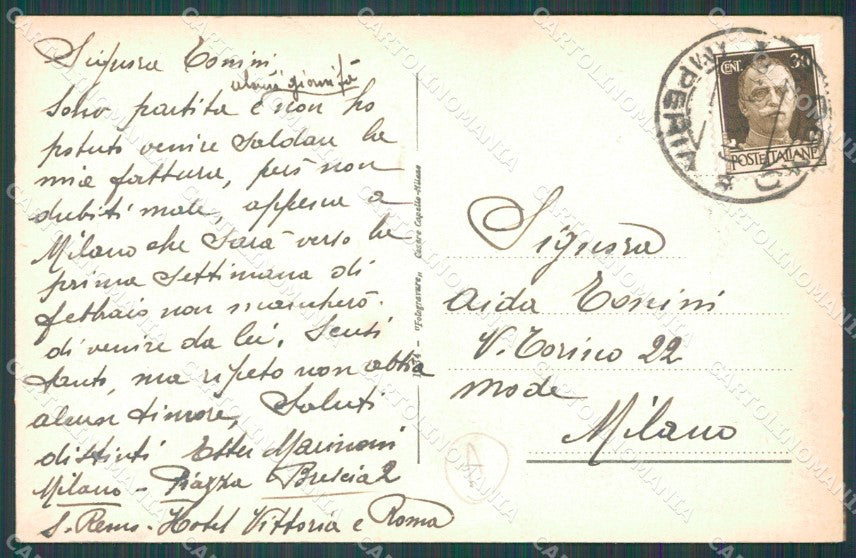 Signora Tonini
alcuni giorni fà
Sono partita e non ho
potuto venire saldare la
mia fattura, però non
dubiti male, appena a
Milano che sarà verso la
prima settimana di
febbraio non mancherò
di venire da lei. Scusi
tanto, ma ripeto non abbia
alcun timore, Saluti
distinti Ester Marinoni
Milano - Piazza Brescia 2
S. Remo - Hotel Vittoria e Roma
"Fotogravure„ Cesare Capello-Milano
CENT. 30
POSTE ITALIANE
IMPERIA
Signora
Aida Tonini
V. Torino 22
mode
Milano
CARTOLINOMANIA